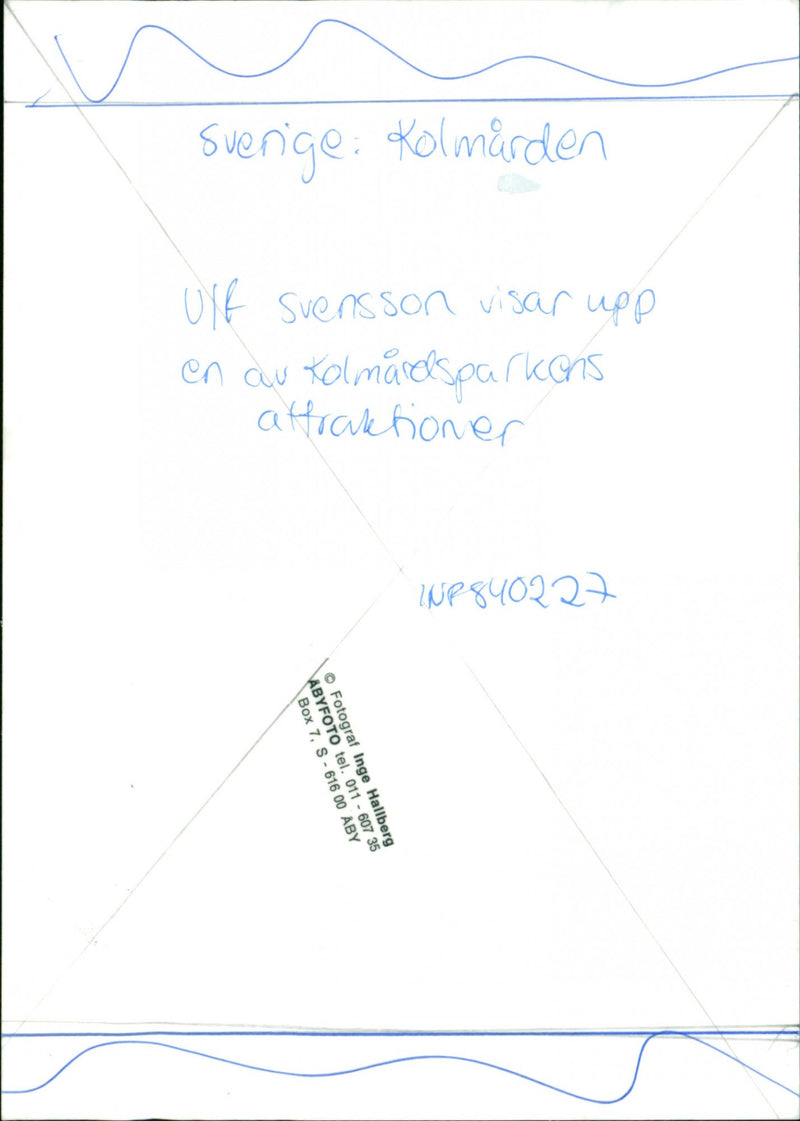 Sverige: Kolmården
Ulf Svensson visar upp
en av Kolmårdsparkens
attraktioner
INP840227
© Fotograf Inge Hallberg
ÅBYFOTO tel. 011 - 607 35
Box 7, S - 616 00 ÅBY